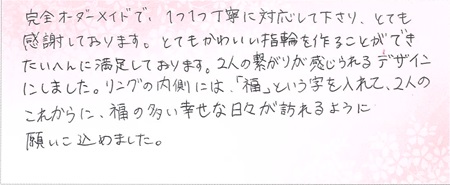 完全オーダーメイドで、1つ1つ丁寧に対応して下さり、とても
感謝しております。とてもかわいい指輪を作ることができ
たいへんに満足しております。2人の繋がりが感じられるデザイン
にしました。リングの内側には、「福」という字を入れて、2人の
これからに、福の多い幸せな日々が訪れるように
願いこ込めました。